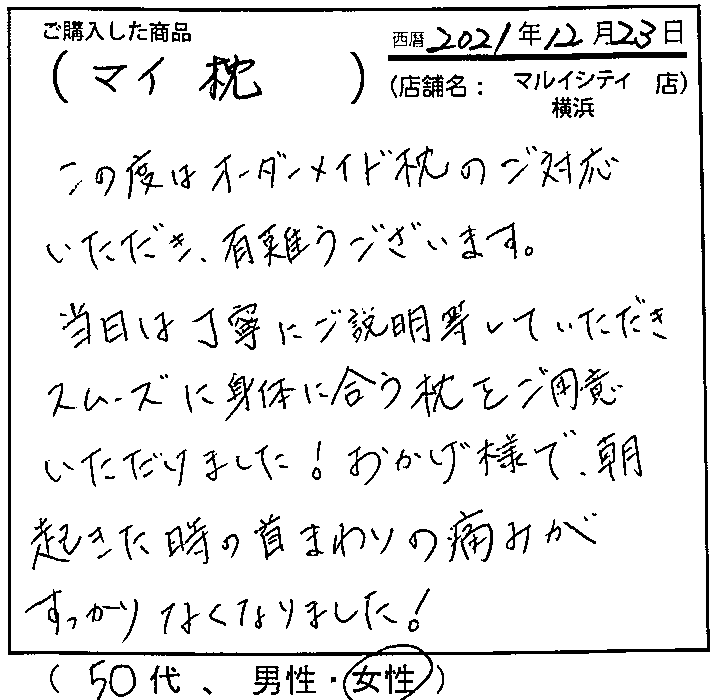 ご購入した商品
西暦 2021年12月23日
(マイ枕)
(店舗名： マルイシティ横浜 店)
この度はオーダーメイド枕のご対応
いただき、有難うございます。
当日は丁寧にご説明等していただき
スムーズに身体に合う枕をご用意
いただけました！おかげ様で、朝
起きた時の首まわりの痛みが
すっかりなくなりました！
(50代、男性・女性)